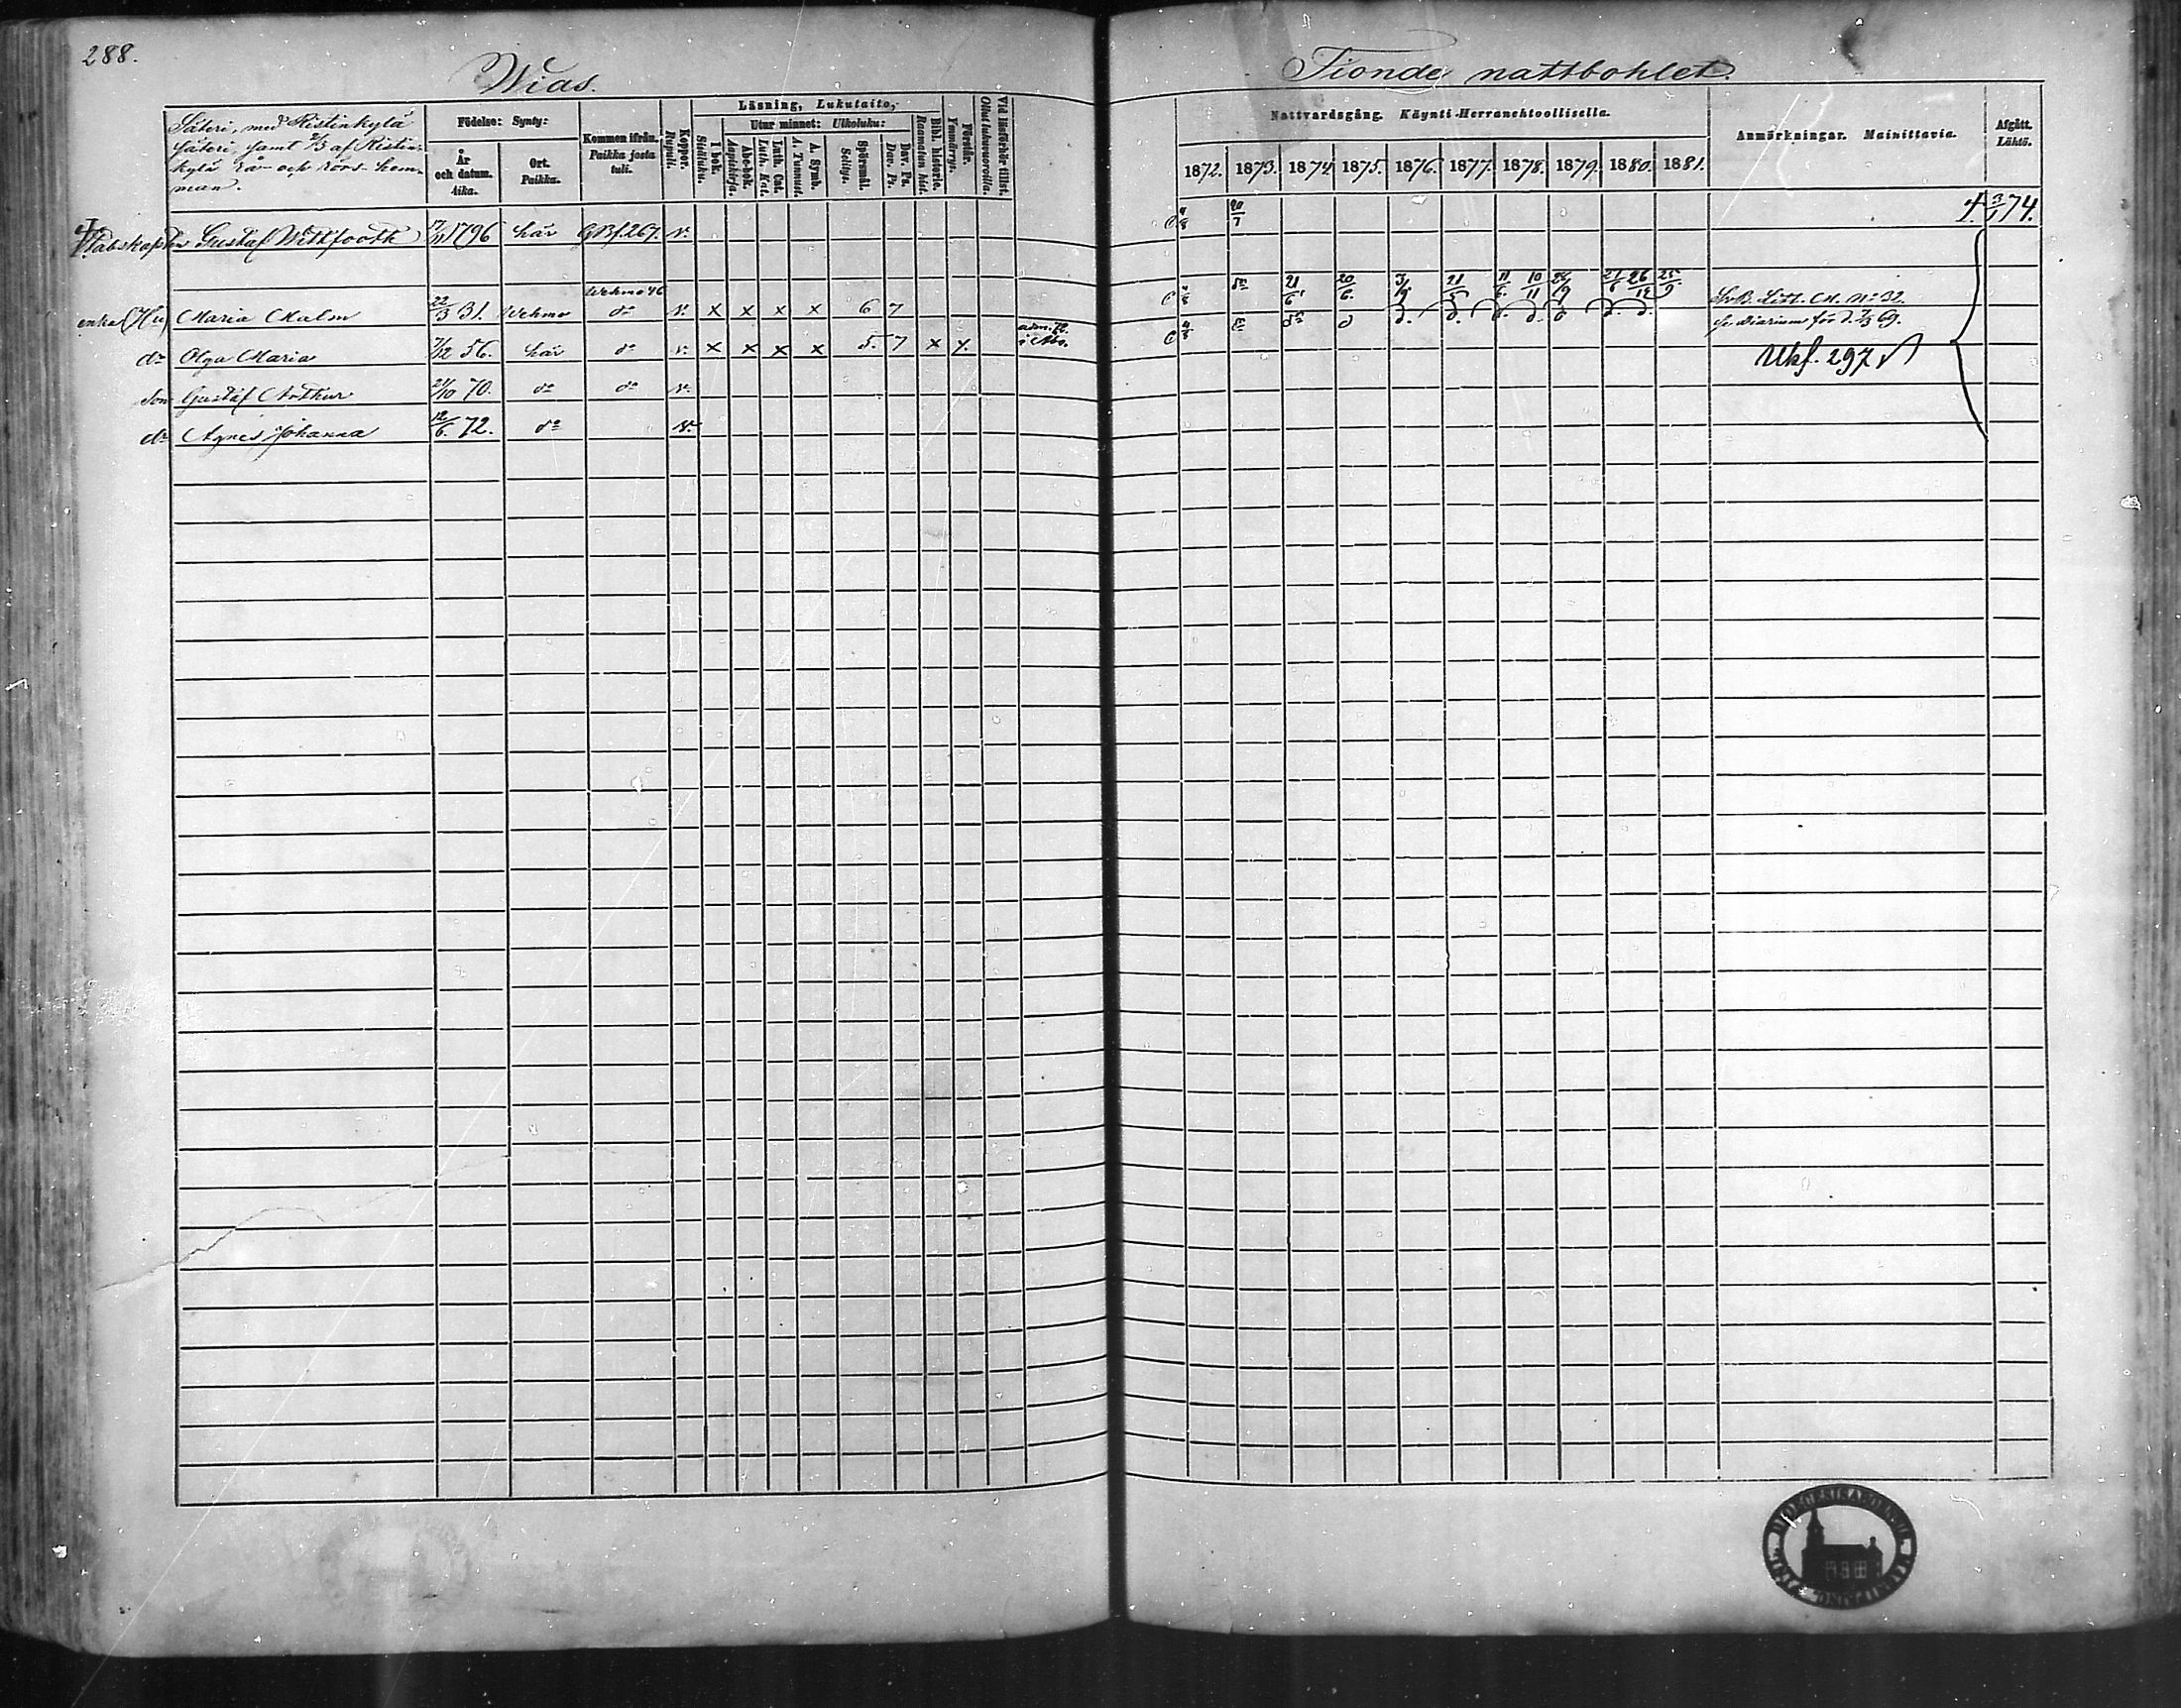 288.
Wias.
Tionde nattbohlet.
Säteri, med Ristinkylä
säteri, samt 2/3 af Ristin-
kylä rå- och rörs-hem-
man.
Födelse: Synty:
År
och datum.
Aika.
Ort.
Paikka.
Kommen ifrån.
Paikka josta
tuli.
Koppor.
Rupuli.
Läsning, Lukutaito,
Sisäluku.
Utur minnet: Ulkoluku:
I bok.
Aapiskirja.
Abc-bok.
Luth. Kat.
Luth. Cat.
A. Tunnust.
A. Symb.
Selitys.
Spörsmål.
Dav. Ps.
Dav. Ps.
Raamatun hist.
Bibl. historie.
Ymmärrys.
Förstår.
Ollut lukuvuoroilla.
Vid läsförhör tillst.
Nattvardsgång. Käynti Herranehtoollisella.
1872. 1873. 1874. 1875. 1876. 1877. 1878. 1879. 1880. 1881.
Anmärkningar. Mainittavia.
Afgått.
Lähtö.
Stabskapten Gustaf Wittfooth 1796 här GBf.267. v. 20/7 † 3/1 74.
Wehmo 46
enka (Hu) Maria Malm 22/3 31. Wehmo do v. x x x x 6 7 21/6 20/6. 21/5 11/6. 10/11 26/12 25/9 S.R. Litt. M. No 32.
dr Olga Maria 7/12 56. här do v. x x x x 5. 7 x x. adm. 72. i Åbo. se Diarium för d. 7/3 69.
Ukf. 297
Son Gustaf Arthur 21/10 70. do do v.
dr Agnes Johanna 12/6. 72. do v.